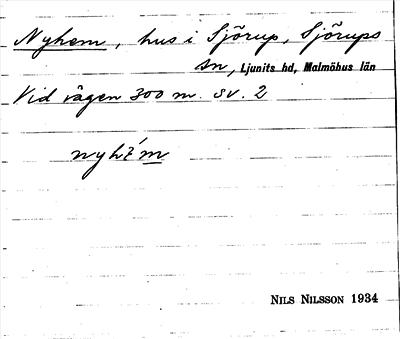 Nyhem, hus i Sjörup, Sjörups
sn, Ljunits hd, Malmöhus län
Vid vägen 300 m. sv. 2
NILS NILSSON 1934